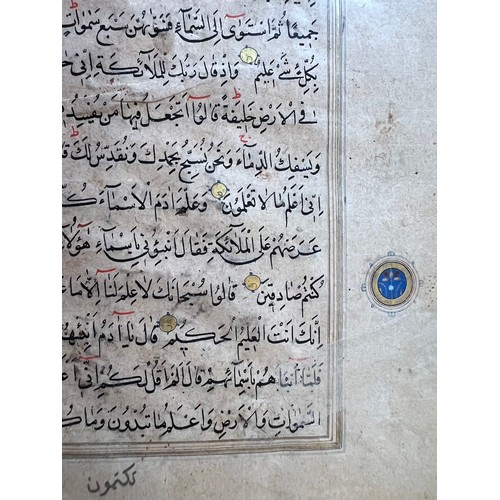 جَمِيعًا ثُمَّ اسْتَوَىٰ إِلَى السَّمَاءِ فَسَوَّىٰهُنَّ سَبْعَ سَمٰوَاتٍ
بِكُلِّ شَيْءٍ عَلِيمٌ وَإِذْ قَالَ رَبُّكَ لِلْمَلَائِكَةِ إِنِّي
فِي الْأَرْضِ خَلِيفَةً قَالُوا أَتَجْعَلُ فِيهَا مَنْ يُفْسِدُ
وَيَسْفِكُ الدِّمَاءَ وَنَحْنُ نُسَبِّحُ بِحَمْدِكَ وَنُقَدِّسُ لَكَ
إِنِّي أَعْلَمُ مَا لَا تَعْلَمُونَ وَعَلَّمَ اٰدَمَ الْأَسْمَاءَ
عَرَضَهُمْ عَلَى الْمَلَائِكَةِ فَقَالَ أَنْبِئُونِي بِأَسْمَاءِ هٰؤُلَاءِ
كُنْتُمْ صَادِقِينَ قَالُوا سُبْحَانَكَ لَا عِلْمَ لَنَا إِلَّا مَا
إِنَّكَ أَنْتَ الْعَلِيمُ الْحَكِيمُ قَالَ يَا اٰدَمُ أَنْبِئْهُمْ
فَلَمَّا أَنْبَأَهُمْ بِأَسْمَائِهِمْ قَالَ أَلَمْ أَقُلْ لَكُمْ إِنِّي
السَّمٰوَاتِ وَالْأَرْضِ وَأَعْلَمُ مَا تُبْدُونَ وَمَا
تكتمون